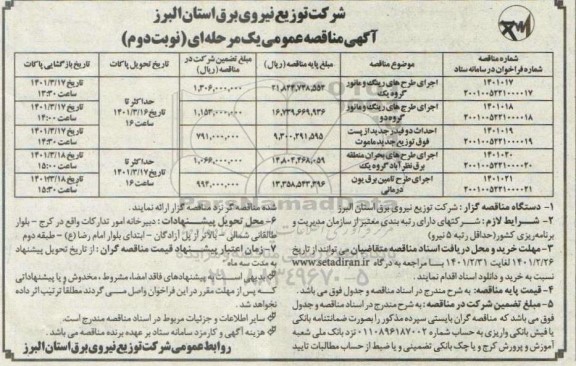 شرکت توزیع نیروی برق استان البرز
آگهی مناقصه عمومی یک مرحله‌ای (نوبت دوم)
شماره مناقصه
شماره فراخوان در سامانه ستاد
موضوع مناقصه
مبلغ پایه مناقصه (ریال)
مبلغ تضمین شرکت در مناقصه (ریال)
تاریخ تحویل پاکات
تاریخ بازگشایی پاکات
۱۴۰۱۰۱۷
۲۰۰۱۰۰۵۲۲۱۰۰۰۰۱۷
اجرای طرح های رینگ و مانور گروه یک
۲۱,۸۲۴,۷۳۸,۵۵۲
۱,۳۰۶,۰۰۰,۰۰۰
حداکثر تا
تاریخ ۱۴۰۱/۳/۱۶
ساعت ۱۶
تاریخ ۱۴۰۱/۳/۱۷
ساعت ۱۳:۳۰
۱۴۰۱۰۱۸
۲۰۰۱۰۰۵۲۲۱۰۰۰۰۱۸
اجرای طرح های رینگ و مانور گروه دو
۱۶,۷۳۹,۶۶۹,۹۳۶
۱,۱۵۳,۰۰۰,۰۰۰
تاریخ ۱۴۰۱/۳/۱۷
ساعت ۱۴:۰۰
۱۴۰۱۰۱۹
۲۰۰۱۰۰۵۲۲۱۰۰۰۰۱۹
احداث دو فیدر جدید از پست فوق توزیع جدید ماموت
۹,۳۰۰,۲۹۱,۵۹۵
۷۹۱,۰۰۰,۰۰۰
تاریخ ۱۴۰۱/۳/۱۷
ساعت ۱۴:۳۰
۱۴۰۱۰۲۰
۲۰۰۱۰۰۵۲۲۱۰۰۰۰۲۰
اجرای طرح های بحران منطقه برق نظرآباد گروه یک
۱۴,۸۰۲,۴۶۸,۰۵۹
۱,۰۶۶,۰۰۰,۰۰۰
حداکثر تا
تاریخ ۱۴۰۱/۳/۱۷
ساعت ۱۶
تاریخ ۱۴۰۱/۳/۱۸
ساعت ۱۵:۰۰
۱۴۰۱۰۲۱
۲۰۰۱۰۰۵۲۲۱۰۰۰۰۲۱
اجرای طرح تامین برق یون درمانی
۱۳,۳۵۸,۵۴۲,۳۹۶
۹۹۲,۰۰۰,۰۰۰
تاریخ ۱۴۰۱/۳/۱۸
ساعت ۱۵:۳۰
۱- دستگاه مناقصه گزار : شرکت توزیع نیروی برق استان البرز
۲- شرایط لازم : شرکتهای دارای رتبه بندی معتبر از سازمان مدیریت و
برنامه‌ریزی کشور (حداقل رتبه ۵ نیرو)
۳- مهلت خرید و محل دریافت اسناد مناقصه متقاضیان می توانند از تاریخ
۱۴۰۱/۲/۲۶ لغایت ۱۴۰۱/۲/۳۱ با مراجعه به درگاه www.setadiran.ir
نسبت به خرید و دانلود اسناد اقدام نمایند.
۴- قیمت پایه مناقصه: به شرح مندرج در اسناد مناقصه و جدول فوق می باشد.
۵- مبلغ تضمین شرکت در مناقصه : به شرح مندرج در اسناد مناقصه و جدول
فوق می باشد که مناقصه گران بایستی سپرده مذکور را بصورت ضمانتنامه بانکی
یا فیش بانکی واریزی به حساب شماره ۰۱۱۰۸۹۶۱۸۷۰۰۲ نزد بانک ملی شعبه
آموزش و پرورش کرج و یا چک بانکی تضمینی و یا ضبط از حساب مطالبات تایید
شده مناقصه گر نزد مناقصه گزار ارائه نمایند.
۶- محل تحویل پیشنهادات : دبیرخانه امور تدارکات واقع در کرج - بلوار
طالقانی شمالی - بالاتر از پل آزادگان - ابتدای بلوار امام رضا (ع) - طبقه دوم
۷- زمان اعتبار پیشنهاد قیمت مناقصه گران : از تاریخ تحویل پیشنهاد
به مدت سه ماه
بدیهی است به پیشنهادهای فاقد امضاء، مشروط، مخدوش و یا پیشنهاداتی
که پس از مهلت مقرر در این فراخوان واصل می گردند مطلقا ترتیب اثر داده
نخواهد شد.
سایر اطلاعات و جزئیات مربوط در اسناد مناقصه مندرج است.
هزینه آگهی و کارمزد سامانه ستاد بر عهده برنده مناقصه می باشد.
روابط عمومی شرکت توزیع نیروی برق استان البرز